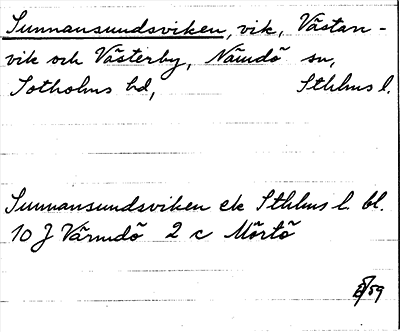 Sunnansundsviken, vik, Västan-
vik och Västerby, Nämdö sn,
Sotholms hd, Sthlms l.
Sunnansundsviken ek Sthlms l. bl.
10 J Värmdö 2 c Mörtö
/59